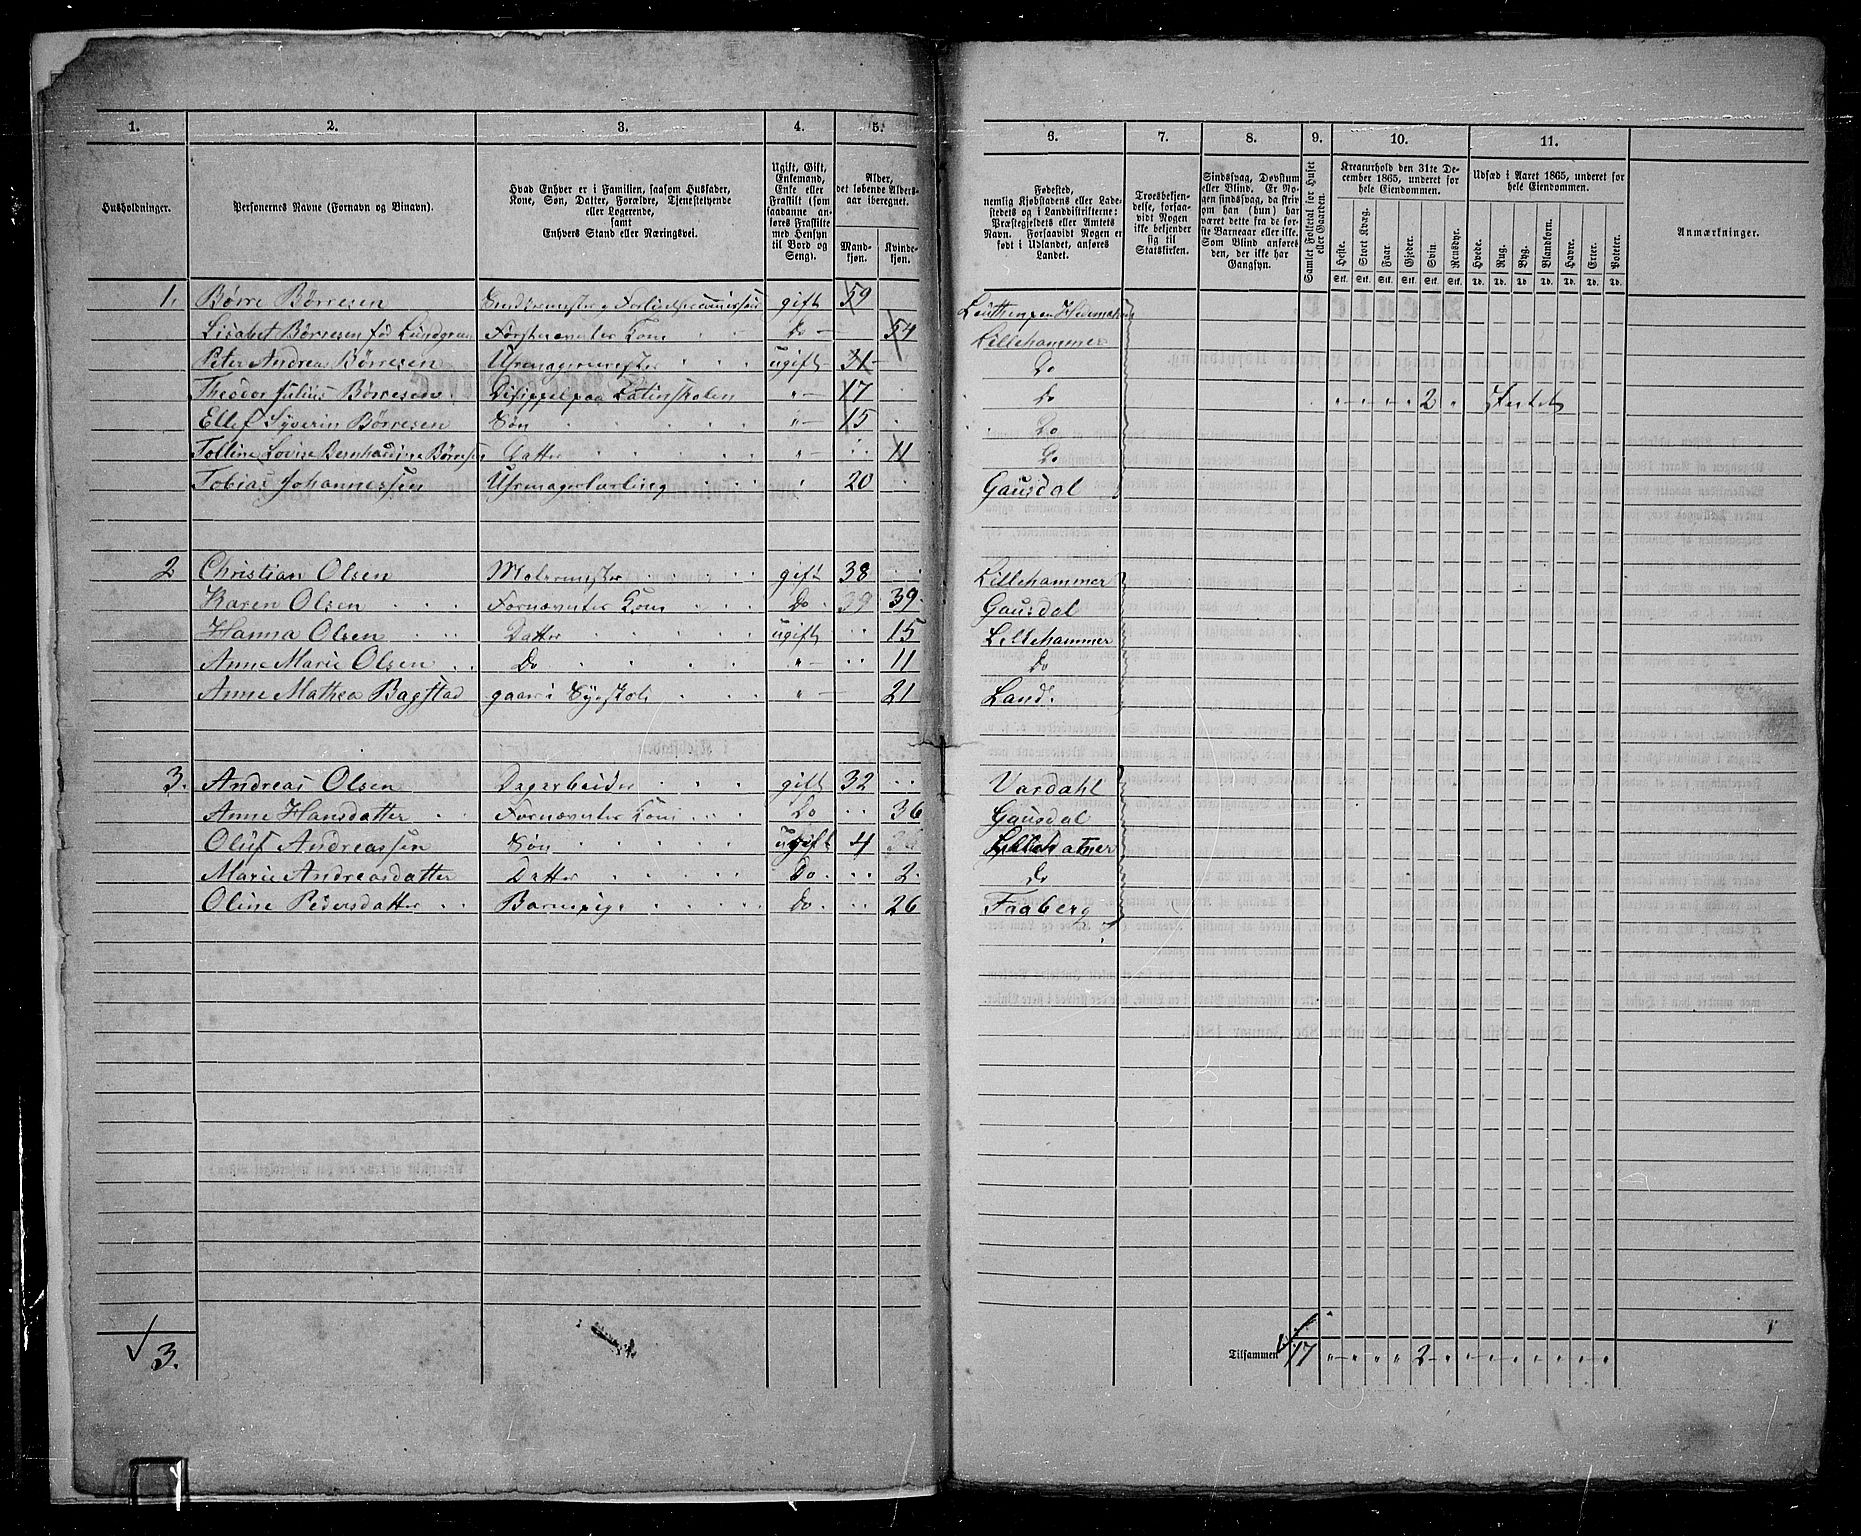 1. 2. 3. 4. 5. 6. 7. 8. 9. 10. 11.
Husholdninger.
Personernes Navne (Fornavn og Binavn).
Hvad Enhver er i Familien, saasom Husfader,
Kone, Søn, Datter, Forældre, Tjenestetyende
eller Logerende,
samt
Enhvers Stand eller Næringsvei.
Ugift, Gift,
Enkemand,
Enke eller
Fraskilt (som
saadanne an-
føres Fraskilte
med Hensyn
til Bord og
Seng).
Alder,
det løbende Alders-
aar iberegnet.
Mand-
kjøn.
Kvinde-
kjøn.
Fødested,
nemlig Kjøbstadens eller Lade-
stedets og i Landdistrikterne:
Præstegjeldets eller Amtets
Navn. Forsaavidt Nogen er
født i Udlandet, anføres
Landet.
Troesbekjen-
delse, forsaa-
vidt Nogen
ikke bekjender
sig til
Statskirken.
Sindssvag, Døvstum
eller Blind. Er No-
gen sindssvag, da skriv
om han (hun) har
været dette fra de før-
ste Barneaar eller ikke.
Som Blind anføres
den, der ikke har
Gangsyn.
Samlet Folketal for Huset
eller Gaarden.
Kreaturhold den 31te De-
cember 1865, underet for
hele Eiendommen.
Heste. Stort Kvæg. Faar. Gjeder. Svin. Rensdyr.
Stk. Stk. Stk. Stk. Stk. Stk.
Udsæd i Aaret 1865, underet for
hele Eiendommen.
Hvede. Rug. Byg. Blandkorn. Havre. Erter. Poteter.
Td. Td. Td. Td. Td. Td. Td.
Anmærkninger.
1. Børre Børresen gift 59
Lisabet Børresen fød Lundgreen Kone Do 54 Lillehammer
Peter Andreas Børresen Uhrmagermester ugift 31 Do
Theodor Julius Børresen Discippel paa Latinskolen " 17 Do 2
Ellef Syverin Børresen Søn " 15 Do
Lovise Bernhardine Børresen Datter " 11 Do
Tobias Johannessen Uhrmagerlærling " 20 Gausdal
2 Christian Olsen Malermester gift 38 Lillehammer
Karen Olsen Fornævnter Kone Do 39 39 Gausdal
Hanna Olsen Datter ugift 15 Lillehammer
Anne Marie Olsen Do " 11 Do
Anne Mathea Bagstad gaar i Syeskole " 21 Land
3. Andreas Olsen Dagarbeider gift 32 Vardahl
Anne Hansdatter Fornævnter Kone Do 36 Gausdal
Oluf Andreassen Søn ugift 4 Lillehamer
Marie Andreasdatter Datter Do 2 do
Oline Pedersdatter Barnepige Do 26 Faaberg
3.
Tilsammen 17 " " " " 2 " " " " " " " "